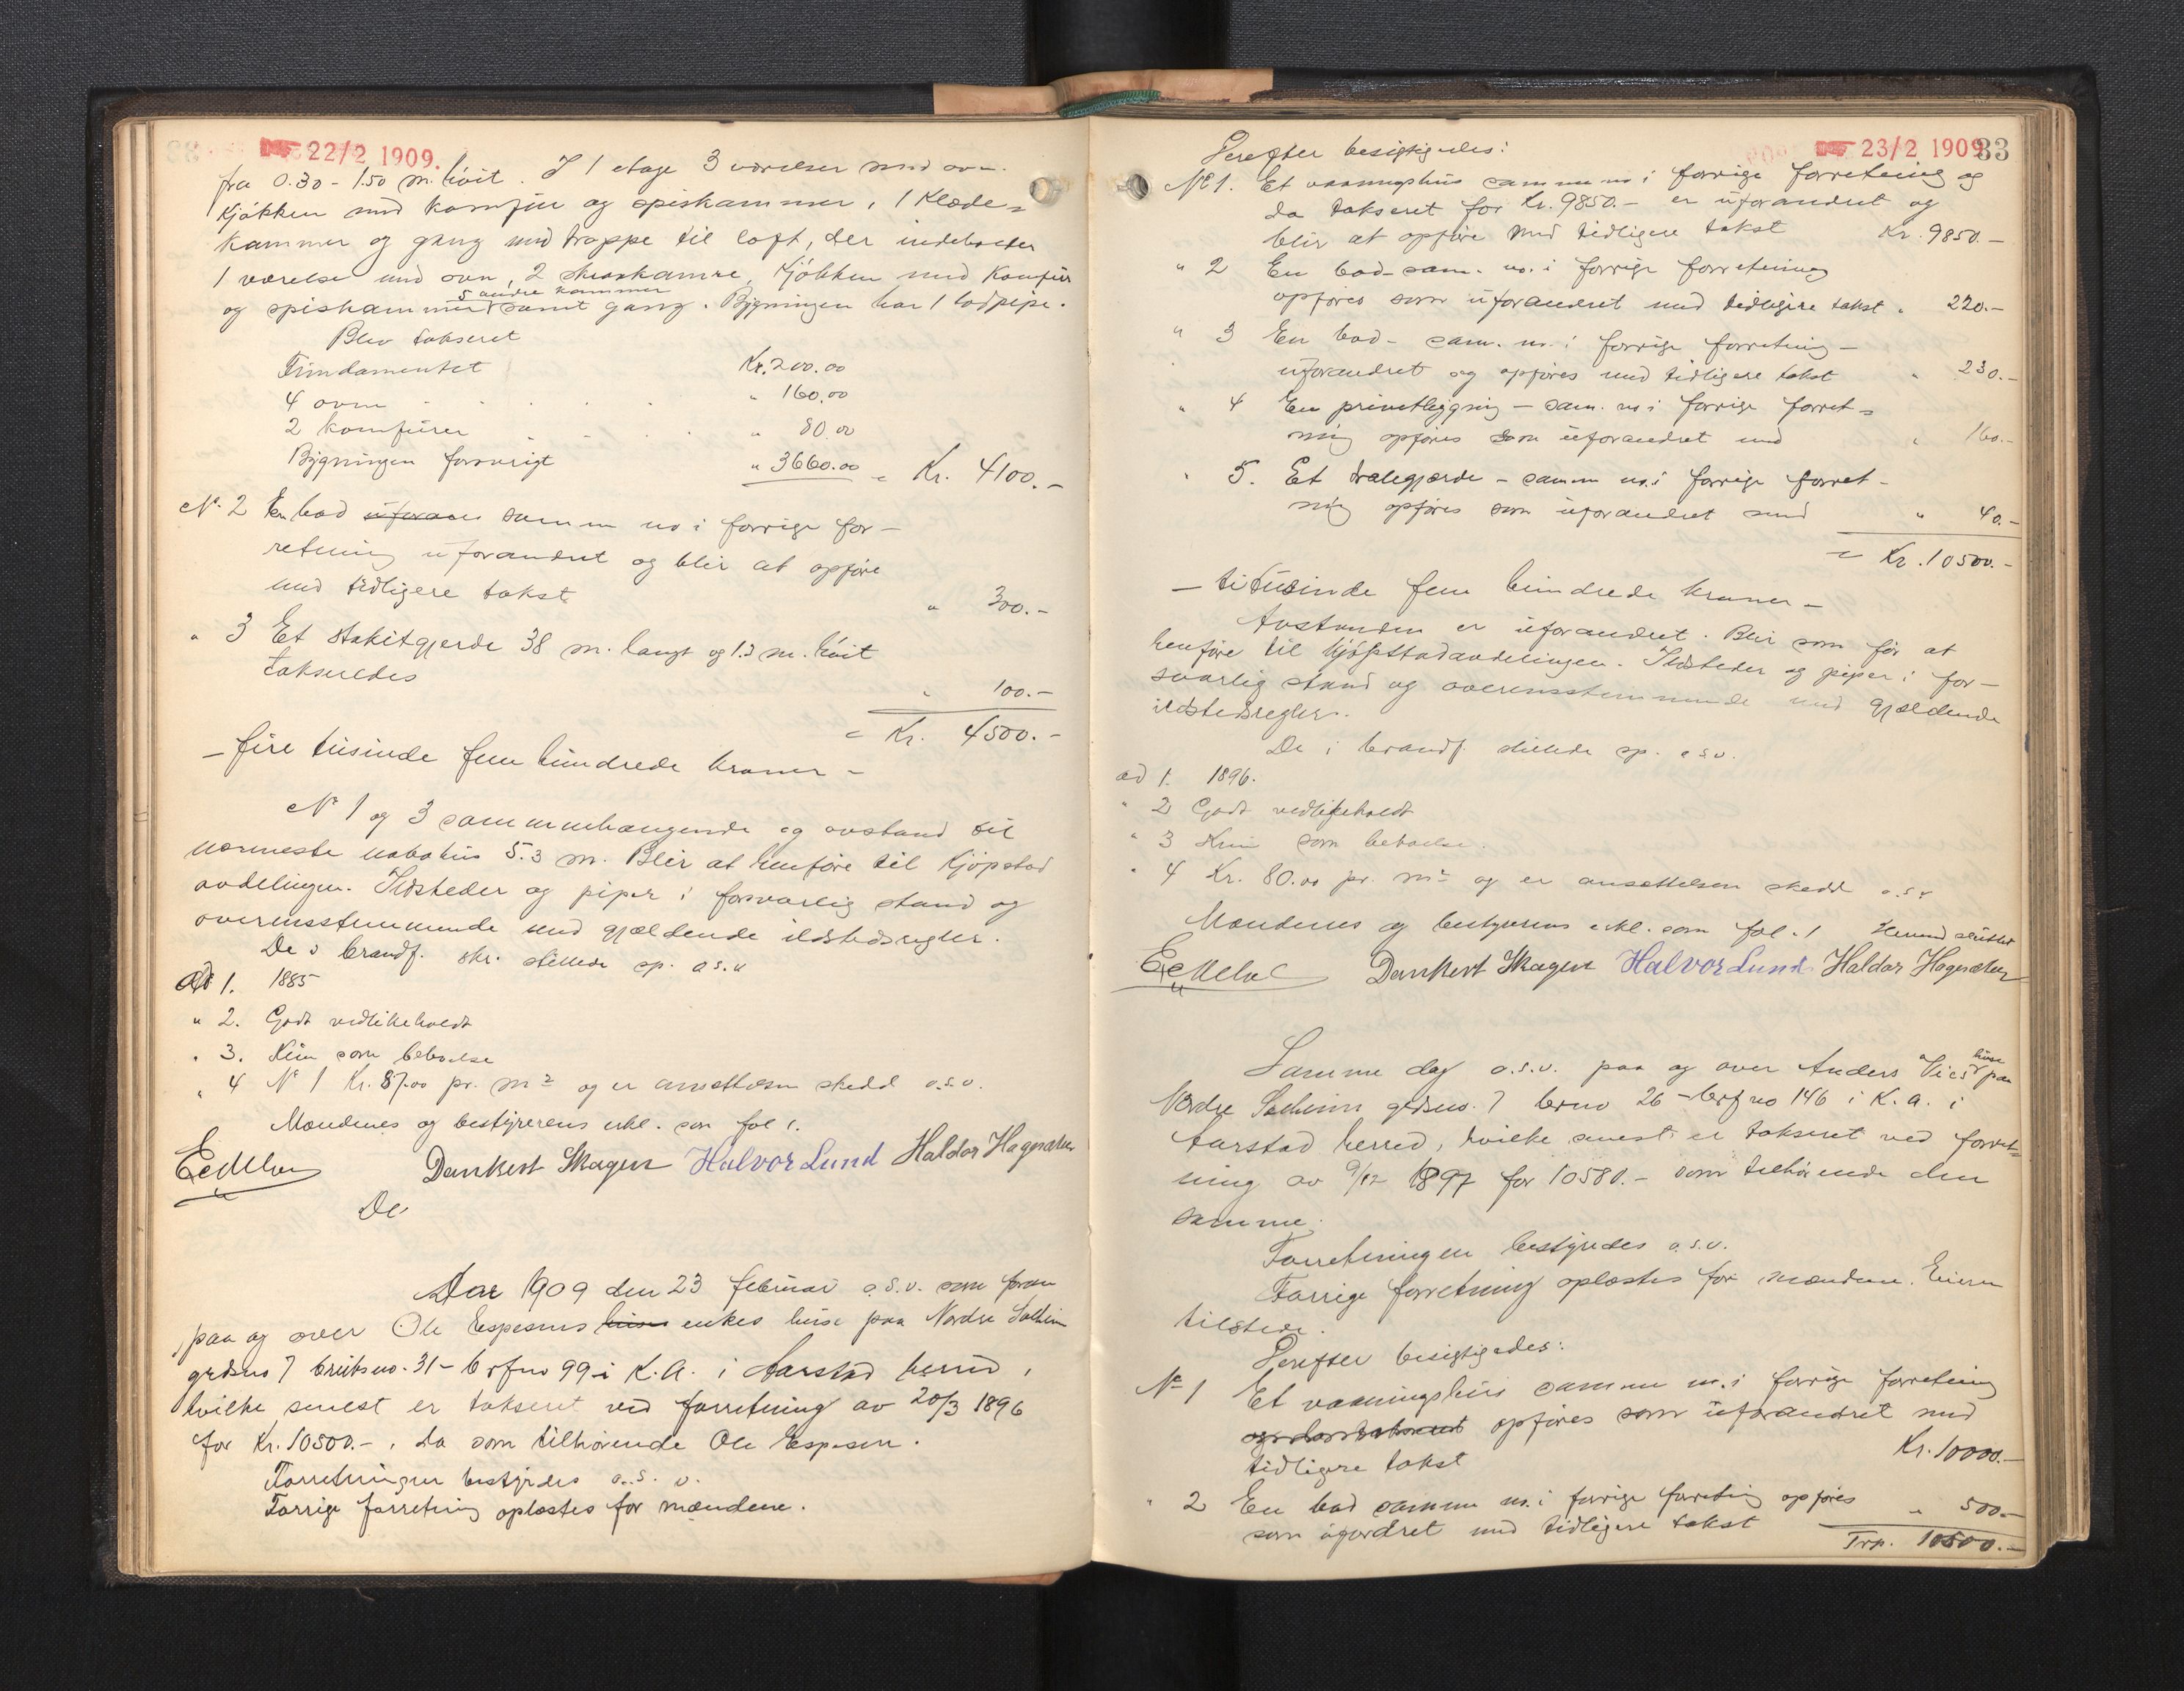 22/2 1909.
fra 0.30 - 1.50 m. høit. I 1 etage 3 værelser med ovn.
Kjøkken med komfur og spiskammer, 1 Klæde-
kammer og gang med trappe til loft, der indeholder
1 værelse med ovn, 2 skraakamre, Kjøkken med Komfur
5 andre kammer
og spiskammer samt gang. Bygningen har 1 lodpipe.
Blev takseret
Fundamentet Kr. 200.00
4 ovne " 160.00
2 Komfurer " 80.00
Bygningen forøvrigt " 3660.00 = Kr. 4100.-
No. 2 En bod samme no i forrige for-
retning uforandret og blir at opføre
med tidligere takst " 300.-
" 3 Et stakitgjerde 38 m. langt og 1.3 m. høit
takseredes " 100.-
= Kr. 4500.-
- fire tusinde fem hundrede kroner -
No 1 og 3 sammenhængende og avstand til
nærmeste nabohus 5.3 m. Blir at henføre til Kjøpstad
avdelingen. Ildsteder og piper i forsvarlig stand og
overensstemmende med gjældende ildstedsregler.
De i brandf. skr. stillede sp. o.s.v
Ad 1. 1885
" 2. Godt vedlikeholdt
" 3. Kun som beboelse
" 4 No 1 Kr. 87.00 pr. m2 og er ansættelsen skedd o.s.v.
Mændenes og bestyrerens erkl. som fol 1.
Dankert Skagen Halvor Lund Haldor Hagenæter
De
Aar 1909 den 23 februar o.s.v. som foran
paa og over Ole Espesens enkes huse paa Nordre Solheim
grdsno 7 bruksno. 31 - brfno 99 i K.A. i Aarstad herred,
hvilke senest er takseret ved forretning av 20/3 1896
for Kr. 10500.-, da som tilhørende Ole Espesen.
Forretningen bestyrdes o.s.v.
Forrige forretning oplæstes for mændene.
23/2 1909
33
Derefter besigtigedes:
No 1. Et vaaningshus samme no i forrige forretning og
da takseret for Kr. 9850.- er uforandret og
blir at opføre med tidligere takst Kr. 9850.-
" 2 En bod - sam. no. i forrige forretning
opføres som uforandret med tidligere takst " 220.-
" 3 En bod - sam. no. i forrige forretning -
uforandret og opføres med tidligere takst " 230.-
" 4 En privetbygning - sam. no i forrige forret-
ning opføres som uforandret med " 160.-
" 5. Et tralegjærde - samm no. i forrige forret-
ning opføres som uforandret med " 40.-
= Kr. 10500.-
- titusinde fem hundrede kroner -
Avstanden er uforandret. Blir som før at
henføre til Kjøpstadavdelingen. Ildsteder og piper i for-
svarlig stand og overensstemmende med gjældende
ildstedsregler.
De i brandf. stillede sp. o.s.v.
ad 1. 1896.
" 2 Godt vedlikeholdt
" 3 Kun som beboelse.
" 4 Kr. 80.00 pr. m2 og er ansættelsen skedd o.s.v
Mændenes og bestyrerens erkl. som fol. 1 Hermed sluttet
Dankert Skagen Halvor Lund Haldor Hagenæter
Samme dag o.s.v. paa og over Anders Vies huse paa
Nordre Solheim grdsno. 7 brno 26 - brfno 146 i K.A. i
Aarstad herred, hvilke senest er takseret ved forret-
ning av 9/12 1897 for 10580.- som tilhørende den
samme.
Forretningen bestyredes o.s.v.
Forrige forretning oplæstes for mændene. Eieren
tilstede.
Derefter besigtigedes:
No 1 Et vaaningshus samme no. i forrige forretning
opføres som uforandret med
tidligere takst Kr. 10000.-
" 2 En bod samme no. i forrige forretning opføres
som uforandret med tidligere takst " 500.-
Trp. 10500.-